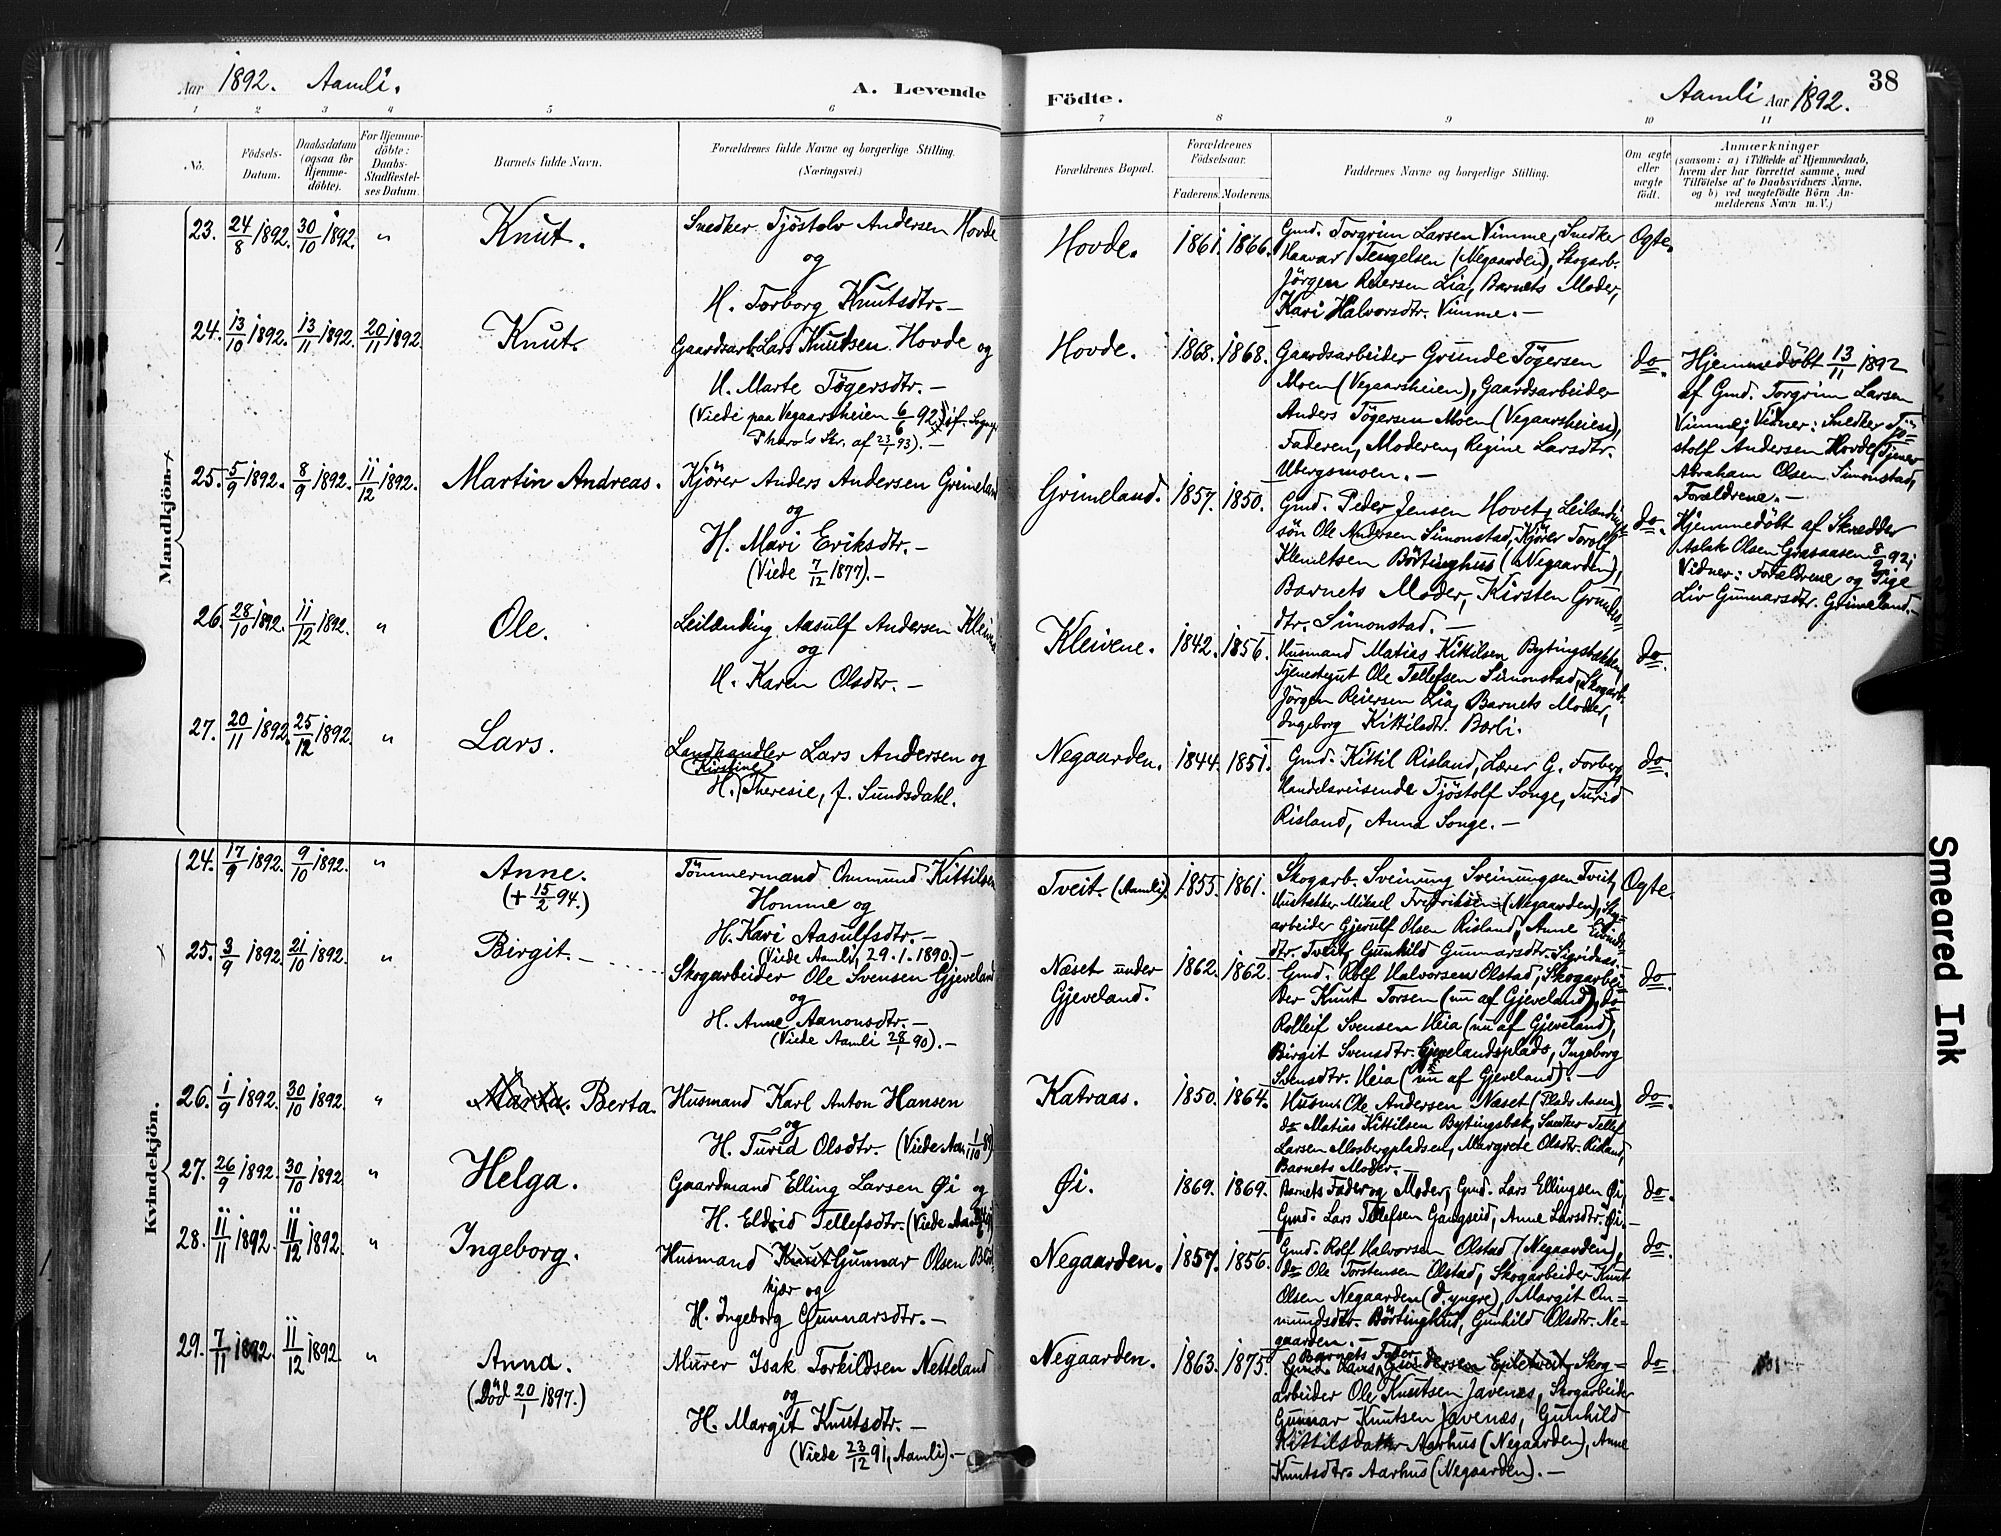 Aar 1892. Aamli. A. Levende
Födte. Aamli Aar 1892. 38
1 2 3 4 5 6 7 8 9 10 11
No.
Födsels-Datum.
Daabsdatum (ogsaa for Hjemme-döbte).
For Hjemme-döbte: Daabs-Stadfæstel-ses Datum.
Barnets fulde Navn.
Forældrenes fulde Navne og borgerlige Stilling.
(Næringsvei.)
Forældrenes Bopæl.
Forældrenes Födselsaar.
Faderens. Moderens.
Faddernes Navne og borgerlige Stilling.
Om ægte eller uægte födt.
Anmærkninger
(saasom: a) i Tilfælde af Hjemmedaab,
hvem der har forrettet samme, med
Tilföielse af to Daabsvidners Navne,
og b) ved uægtefödte Börn An-
melderens Navn m. V.)
Mandkjön.
23. 24/8 1892. 30/10 1892. " Knut.
Snedker Tjöstolv Andersen Hovde
og
H. Torborg Knutsdtr. —
Hovde. 1861. 1866.
Gmd. Torgrim Larsen Vimme, Snedker
Haavar Tengelsen (Negaarden), Skogarb.
Jörgen Reiersen Lia, Barnets Moder,
Kari Halvorsdtr. Vimme. —
Ogte.
24. 13/10 1892. 13/11 1892. 20/11 1892. Knut.
Gaardsarb. Lars Knutsen Hovde og
H. Marte Tögersdtr. —
(Viede paa Vegaarsheien 6/6 92, jf. Sogne-
Skr. af 23/1 93). —
Hovde. 1868. 1868.
Gaardsarbeider Grunde Tögersen
Moen (Vegaarsheien), Gaardsarbeider
Anders Tögersen Moen (Vegaarsheien),
Faderen, Moderen, Regine Larsdtr.
Ubergsmoen. —
do.
Hjemmedöbt 13/11 1892
af Gmd. Torgrim Larsen
Vimme; Vidner: Snedker Tjö-
stolf Andersen Hovde, Tjener
Abraham Olsen Simonstad,
Forældrene. —
25. 5/9 1892. 8/9 1892. 11/12 1892. Martin Andreas.
Kjörer Anders Andersen Grimeland
og
H. Mari Eriksdtr. —
(Viede 7/12 1877). —
Grimeland. 1857. 1850.
Gmd. Peder Jensen Hovet, Leilændings-
sön Ole Andersen Simonstad, Kjörer Torolf
Klemetsen Börtinghus (Negaarden),
Barnets Moder, Kirsten Grundes-
dtr. Simonstad. —
do.
Hjemmedöbt af Skrædder
Aslak Olsen Grasaasen 8/9 92;
Vidner: Forældrene og Pige
Liv Gunnarsdtr. Grimeland.
26. 28/10 1892. 11/12 1892. " Ole.
Leilænding Aasulf Andersen Kleivene
og
H. Karen Olsdtr. —
Kleivene. 1842. 1856.
Husmand Matias Kittilsen Bytingsbækken,
Tjenestegut Ole Tellefsen Simonstad, Skogarb.
Jörgen Reiersen Lia, Barnets Moder,
Ingeborg Kittilsdtr. Borli.
do.
27. 20/11 1892. 25/12 1892. " Lars.
Landhandler Lars Andersen og
Kirstine
H. Theresie, f. Sundsdahl.
Negaarden. 1844. 1851.
Gmd. Kittil Risland, Lærer G. Forberg
Handelsreisende Tjöstolf Songe, Turid
Risland, Anna Songe. —
do.
Kvindekjön.
24. 17/9 1892. 9/10 1892. " Anne.
(+ 15/2 94.)
Tömmermand Ommund Kittilsen
Homme og
H. Kari Aasulfsdtr. —
(Viede Aamli, 29.1.1890.) —
Tveit. (Aamli). 1855. 1861.
Skogarb. Sveinung Sveinungsen Tveit,
Mikael Fredriksen (Negaarden), Skog-
arbeider Gjerulf Olsen Risland, Anne Eivinds-
dtr. Tveit, Gunhild Gunnarsdtr. Sigridnæs.
Ogte.
25. 3/9 1892. 21/10 1892. " Birgit. —
Skogarbeider Ole Svensen Gjeveland
og
H. Anne Aanonsdtr. —
(Viede Aamli 28/1 90). —
Næset under
Gjeveland.
1862. 1862.
Gmd. Rolf Halvorsen Olstad, Skogarbei-
der Knut Torsen (nu af Gjeveland), do
Rolleif Svensen Heia (nu af Gjeveland),
Birgit Svensdtr. Gjevelandsplads, Ingeborg
Svensdtr. Heia (nu af Gjeveland). —
do.
26. 1/9 1892. 30/10 1892. " Marta. Berta.
Husmand Karl Anton Hansen
og
H. Turid Olsdtr. (Viede Aamli 1/10 89)
Katraas. 1850. 1864.
Husm. Ole Andersen Næset (Plads Aasen),
do Matias Kittilsen Bytingsbæk, Snedker Tellef
Larsen Mosbergpladsen, Margrete Olsdtr. Risland,
Barnets Moder. —
do.
27. 26/9 1892. 30/10 1892. " Helga.
Gaardmand Elling Larsen Øi og
H. Eldrid Tellefsdtr. (Viede Aamli
Øi. 1869. 1869.
Barnets Fader og Moder, Gmd. Lars Ellingsen Øi,
Gmd. Lars Tellefsen Gangseid, Anne Larsdtr. Øi. —
do.
28. 11/11 1892. 11/12 1892. " Ingeborg.
Husmand Knut Gunnar Olsen
kjær og
H. Ingeborg Gunnarsdtr. —
Negaarden. 1857. 1856.
Gmd. Rolf Halvorsen Olstad (Negaarden),
do Ole Torstensen Olstad, Skogarbeider Knut
Olsen Negaarden (d. yngre), Margit Om-
mundsdtr. Börtinghus, Gunhild Olsdtr. Ne-
gaarden. —
do.
29. 7/11 1892. 11/12 1892 " Anna.
(Död 20/1 1897.)
Murer Isak Torkildsen Netteland
og
H. Margit Knutsdtr. —
(Viede 23/12 91, Aamli). —
Negaarden. 1863. 1875.
Barnets Fader
Gmd. Lars Gundersen Epletveit, Skog-
arbeider Ole Knutsen Javenæs, Skogarbeider
Gunnar Knutsen Javenæs, Gunhild
Kittilsdatter Aarhus (Negaarden), Anne
Knutsdtr. Aarhus (Negaarden). —
do.
Smeared Ink